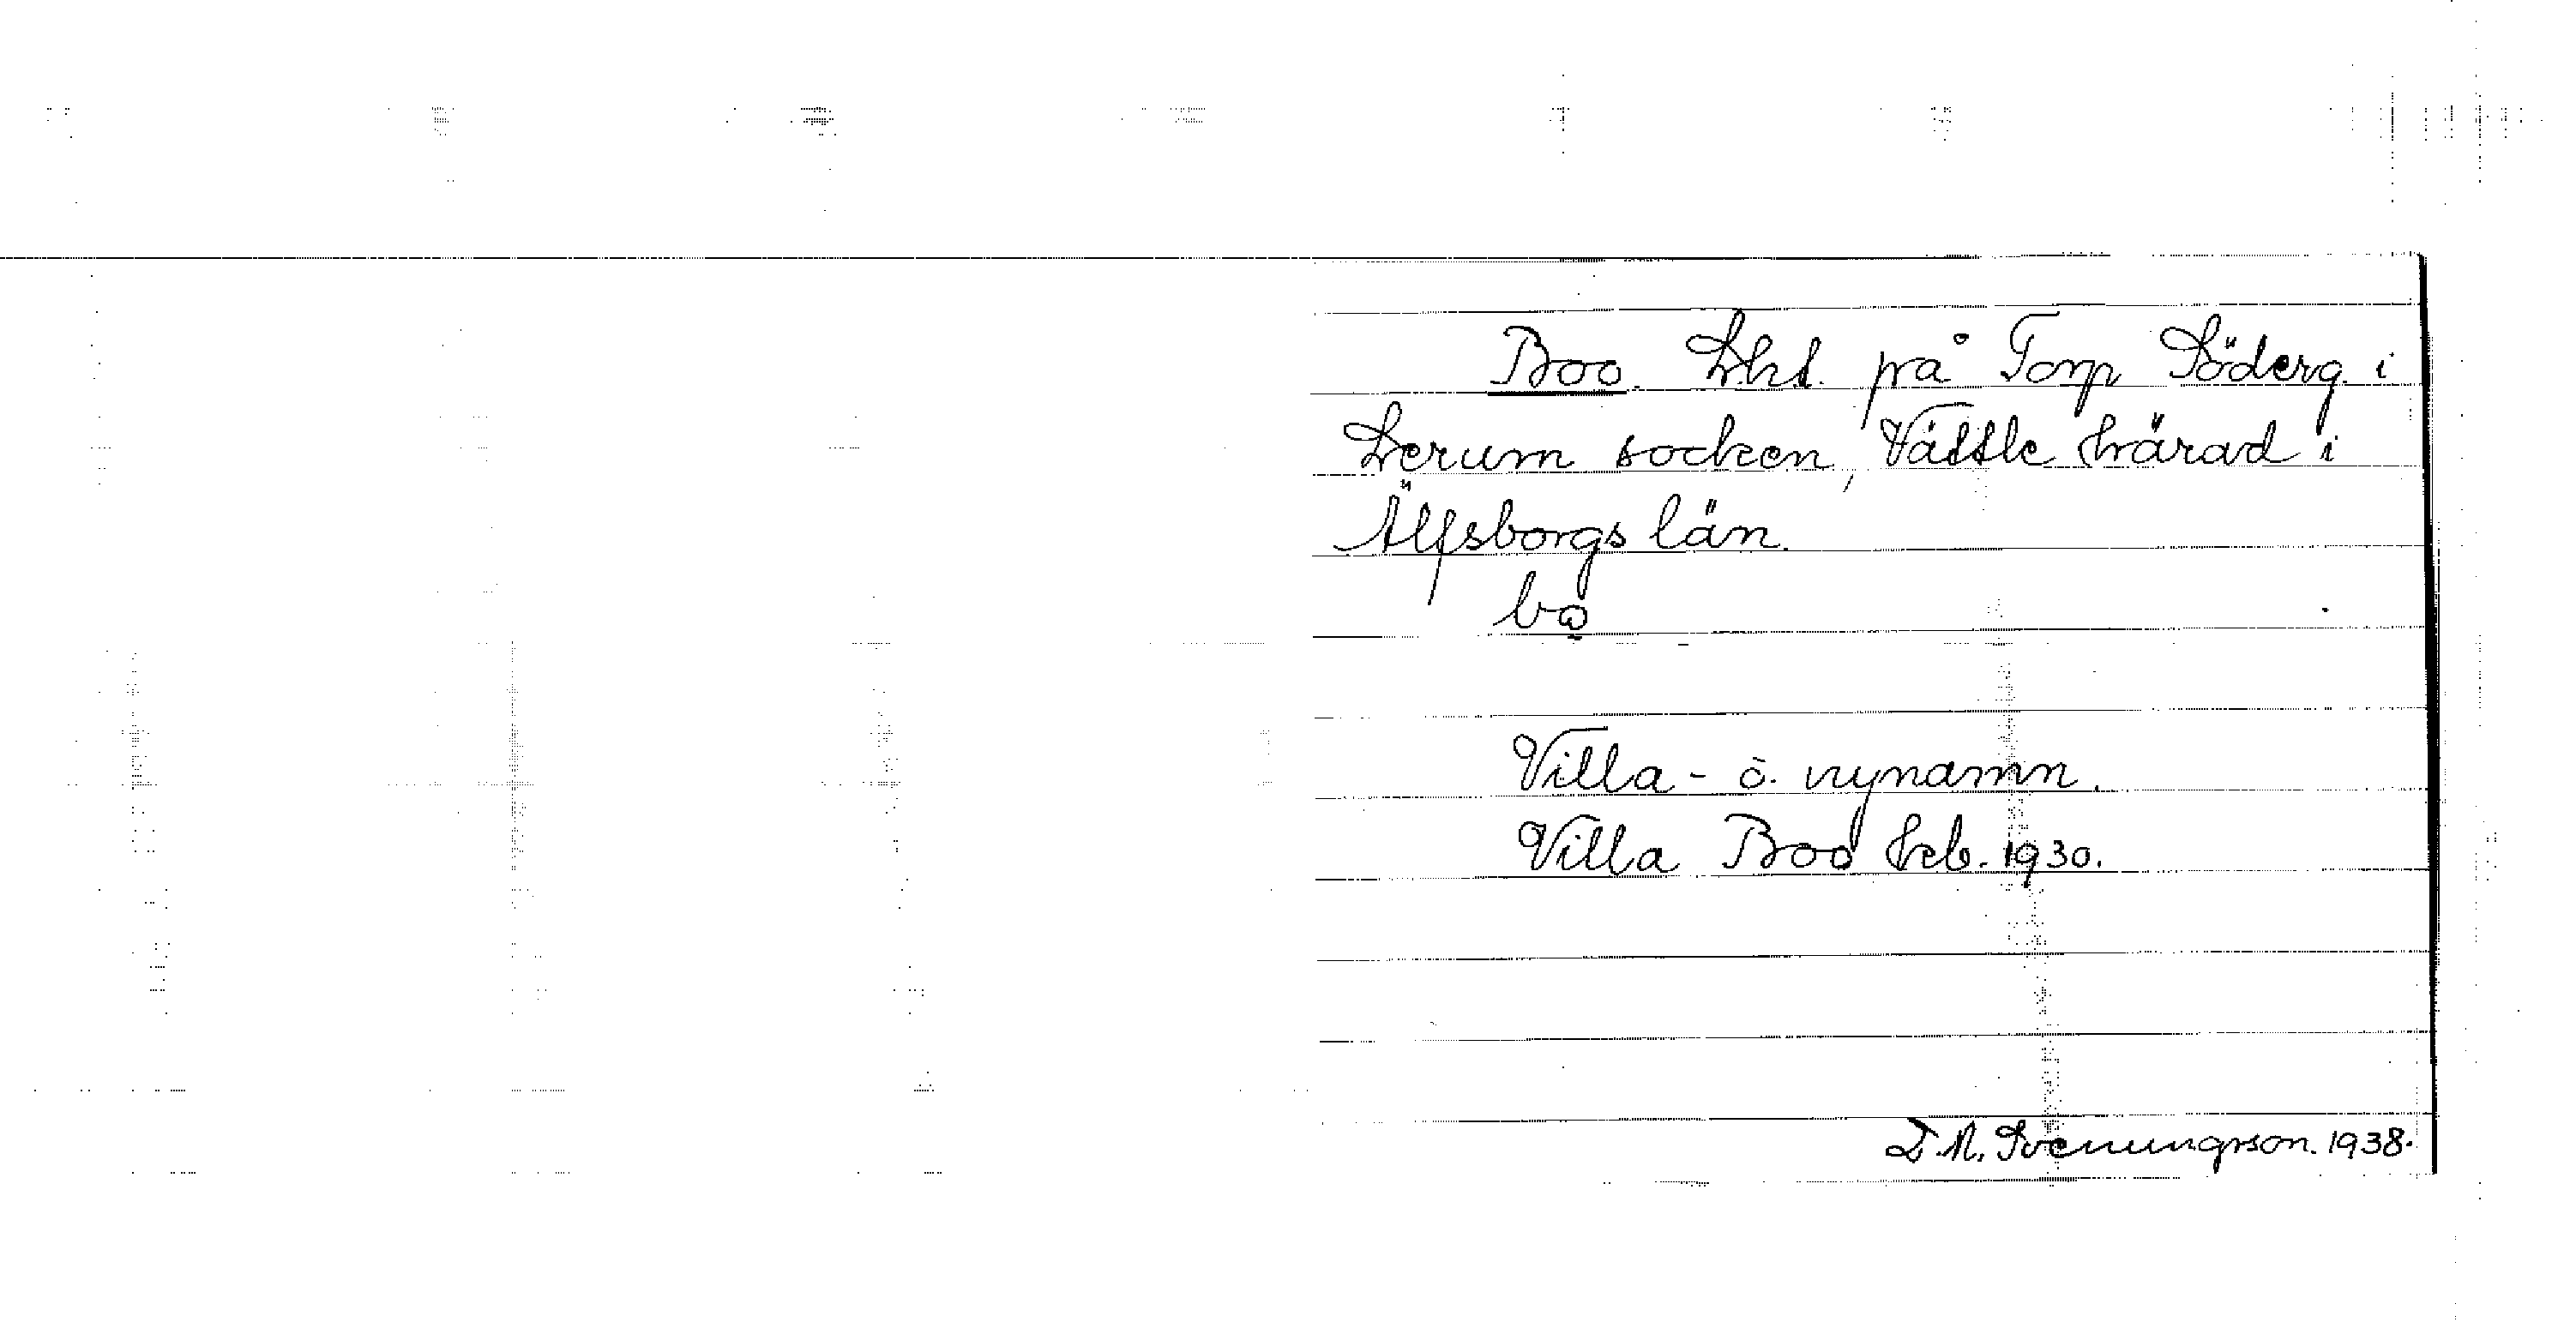 Boo. Lht. på Torp Söderg. i
Lerum socken, Vättle härad i
Älfsborgs län.
bo
Villa- o. nynamn.
Villa Boo Jrb. 1930.
D. N. Svenungsson. 1938.